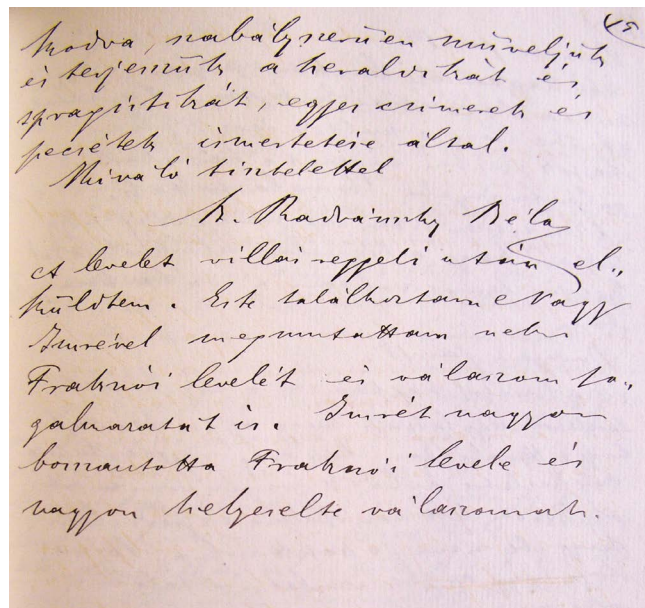 kodva, szabályszerűen műveljük
és terjesszük a heraldikát és
spragistikát, egyes czimerek és
pecsétek ismertetése által.
Kiváló tisztelettel
B. Radvánszky Béla
A levelet villásreggeli után el„
küldtem. Este találkoztam Nagy
Imrével megmutattam neki
Fraknói levelét és válaszom fo„
galmazatát is. Imrét nagyon
bosszantotta Fraknói levele és
nagyon helyeselte válaszomat.